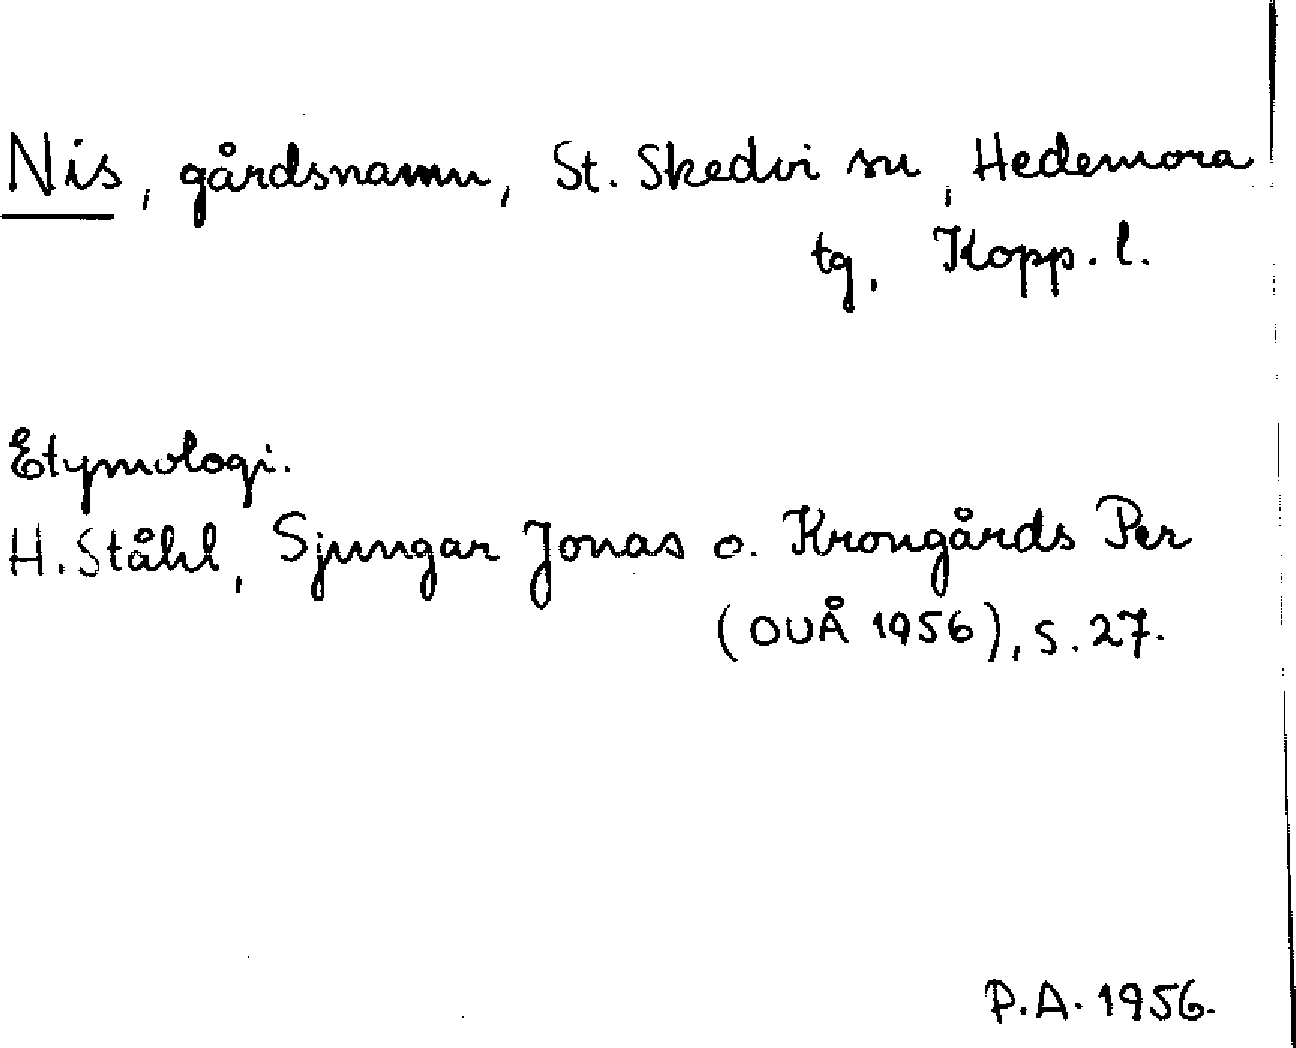 Nis, gårdsnamn, St. Skedvi sn, Hedemora
tg, Kopp. l.
Etymologi.
H. Ståhl, Sjungar Jonas o. Krongårds Per
(OUÅ 1956), s. 27.
P.A. 1956.